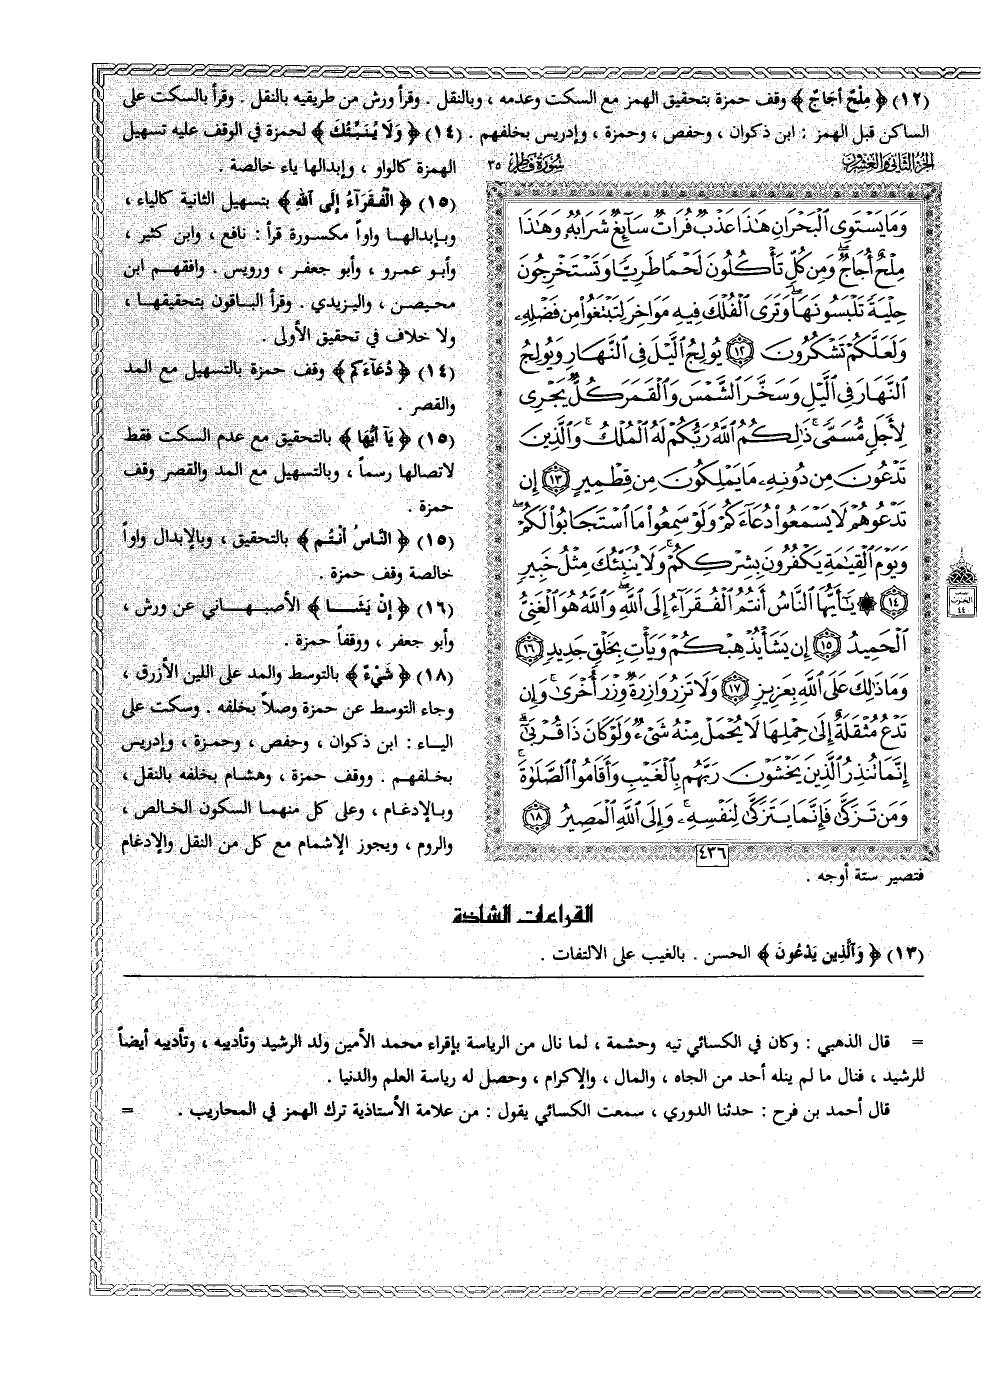 (١٢) ﴿ مِلْحٌ أُجَاجٌ ﴾ وقف حمزة بتحقيق الهمز مع السكت وعدمه ، وبالنقل . وقرأ ورش من طريقيه بالنقل . وقرأ بالسكت على
الساكن قبل الهمز : ابن ذكوان ، وحفص ، وحمزة ، وإدريس بخلفهم . (١٤) ﴿ وَلَا يُنَبِّئُكَ ﴾ لحمزة في الوقف عليه تسهيل
الهمزة كالواو ، وإبدالها ياء خالصة .
(١٥) ﴿ الْفُقَرَآءُ إِلَى اللهِ ﴾ بتسهيل الثانية كالياء ،
وبإبدالها واواً مكسورة قرأ : نافع ، وابن كثير ،
وأبو عمرو ، وأبو جعفر ، ورويس . وافقهم ابن
محيصن ، واليزيدي . وقرأ الباقون بتحقيقها ،
ولا خلاف في تحقيق الأولى .
(١٤) ﴿ دُعَآءَكُم ﴾ وقف حمزة بالتسهيل مع المد
والقصر .
(١٥) ﴿ يَآ أَيُّهَا ﴾ بالتحقيق مع عدم السكت فقط
لاتصالها رسماً ، وبالتسهيل مع المد والقصر وقف
حمزة .
(١٥) ﴿ النَّاسُ أَنْتُم ﴾ بالتحقيق ، وبالإبدال واواً
خالصة وقف حمزة .
(١٦) ﴿ إِنْ يَشَا ﴾ الأصبهاني عن ورش ،
وأبو جعفر ، ووقفاً حمزة .
(١٨) ﴿ شَيْءٌ ﴾ بالتوسط والمد على اللين الأزرق ،
وجاء التوسط عن حمزة وصلاً بخلفه . وسكت على
الياء : ابن ذكوان ، وحفص ، وحمزة ، وإدريس
بخلفهم . ووقف حمزة ، وهشام بخلفه بالنقل ،
وبالإدغام ، وعلى كل منهما السكون الخالص ،
والروم ، ويجوز الإشمام مع كل من النقل والإدغام
الجزء الثاني والعشرون
سورة فاطر ٣٥
وَمَا يَسْتَوِى ٱلْبَحْرَانِ هَٰذَا عَذْبٌ فُرَاتٌ سَآئِغٌ شَرَابُهُۥ وَهَٰذَا
مِلْحٌ أُجَاجٌ ۖ وَمِن كُلٍّ تَأْكُلُونَ لَحْمًا طَرِيًّا وَتَسْتَخْرِجُونَ
حِلْيَةً تَلْبَسُونَهَا ۖ وَتَرَى ٱلْفُلْكَ فِيهِ مَوَاخِرَ لِتَبْتَغُوا۟ مِن فَضْلِهِۦ
وَلَعَلَّكُمْ تَشْكُرُونَ ١٢ يُولِجُ ٱلَّيْلَ فِى ٱلنَّهَارِ وَيُولِجُ
ٱلنَّهَارَ فِى ٱلَّيْلِ وَسَخَّرَ ٱلشَّمْسَ وَٱلْقَمَرَ كُلٌّ يَجْرِى
لِأَجَلٍ مُّسَمًّى ۚ ذَٰلِكُمُ ٱللَّهُ رَبُّكُمْ لَهُ ٱلْمُلْكُ ۚ وَٱلَّذِينَ
تَدْعُونَ مِن دُونِهِۦ مَا يَمْلِكُونَ مِن قِطْمِيرٍ ١٣ إِن
تَدْعُوهُمْ لَا يَسْمَعُوا۟ دُعَآءَكُمْ وَلَوْ سَمِعُوا۟ مَا ٱسْتَجَابُوا۟ لَكُمْ ۖ
وَيَوْمَ ٱلْقِيَٰمَةِ يَكْفُرُونَ بِشِرْكِكُمْ ۚ وَلَا يُنَبِّئُكَ مِثْلُ خَبِيرٍ
١٤ ۞ يَٰٓأَيُّهَا ٱلنَّاسُ أَنتُمُ ٱلْفُقَرَآءُ إِلَى ٱللَّهِ ۖ وَٱللَّهُ هُوَ ٱلْغَنِىُّ
ٱلْحَمِيدُ ١٥ إِن يَشَأْ يُذْهِبْكُمْ وَيَأْتِ بِخَلْقٍ جَدِيدٍ ١٦
وَمَا ذَٰلِكَ عَلَى ٱللَّهِ بِعَزِيزٍ ١٧ وَلَا تَزِرُ وَازِرَةٌ وِزْرَ أُخْرَىٰ ۚ وَإِن
تَدْعُ مُثْقَلَةٌ إِلَىٰ حِمْلِهَا لَا يُحْمَلْ مِنْهُ شَىْءٌ وَلَوْ كَانَ ذَا قُرْبَىٰٓ ۗ
إِنَّمَا تُنذِرُ ٱلَّذِينَ يَخْشَوْنَ رَبَّهُم بِٱلْغَيْبِ وَأَقَامُوا۟ ٱلصَّلَوٰةَ ۚ
وَمَن تَزَكَّىٰ فَإِنَّمَا يَتَزَكَّىٰ لِنَفْسِهِۦ ۚ وَإِلَى ٱللَّهِ ٱلْمَصِيرُ ١٨
٤٣٦
الحزب
٤٤
فتصير ستة أوجه .
القراءات الشاذة
(١٣) ﴿ وَالَّذِينَ يَدْعُونَ ﴾ الحسن . بالغيب على الالتفات .
= قال الذهبي : وكان في الكسائي تيه وحشمة ، لما نال من الرياسة بإقراء محمد الأمين ولد الرشيد وتأديبه ، وتأديبه أيضاً
للرشيد ، فنال ما لم ينله أحد من الجاه ، والمال ، والإكرام ، وحصل له رياسة العلم والدنيا .
قال أحمد بن فرح : حدثنا الدوري ، سمعت الكسائي يقول : من علامة الأستاذية ترك الهمز في المحاريب . =